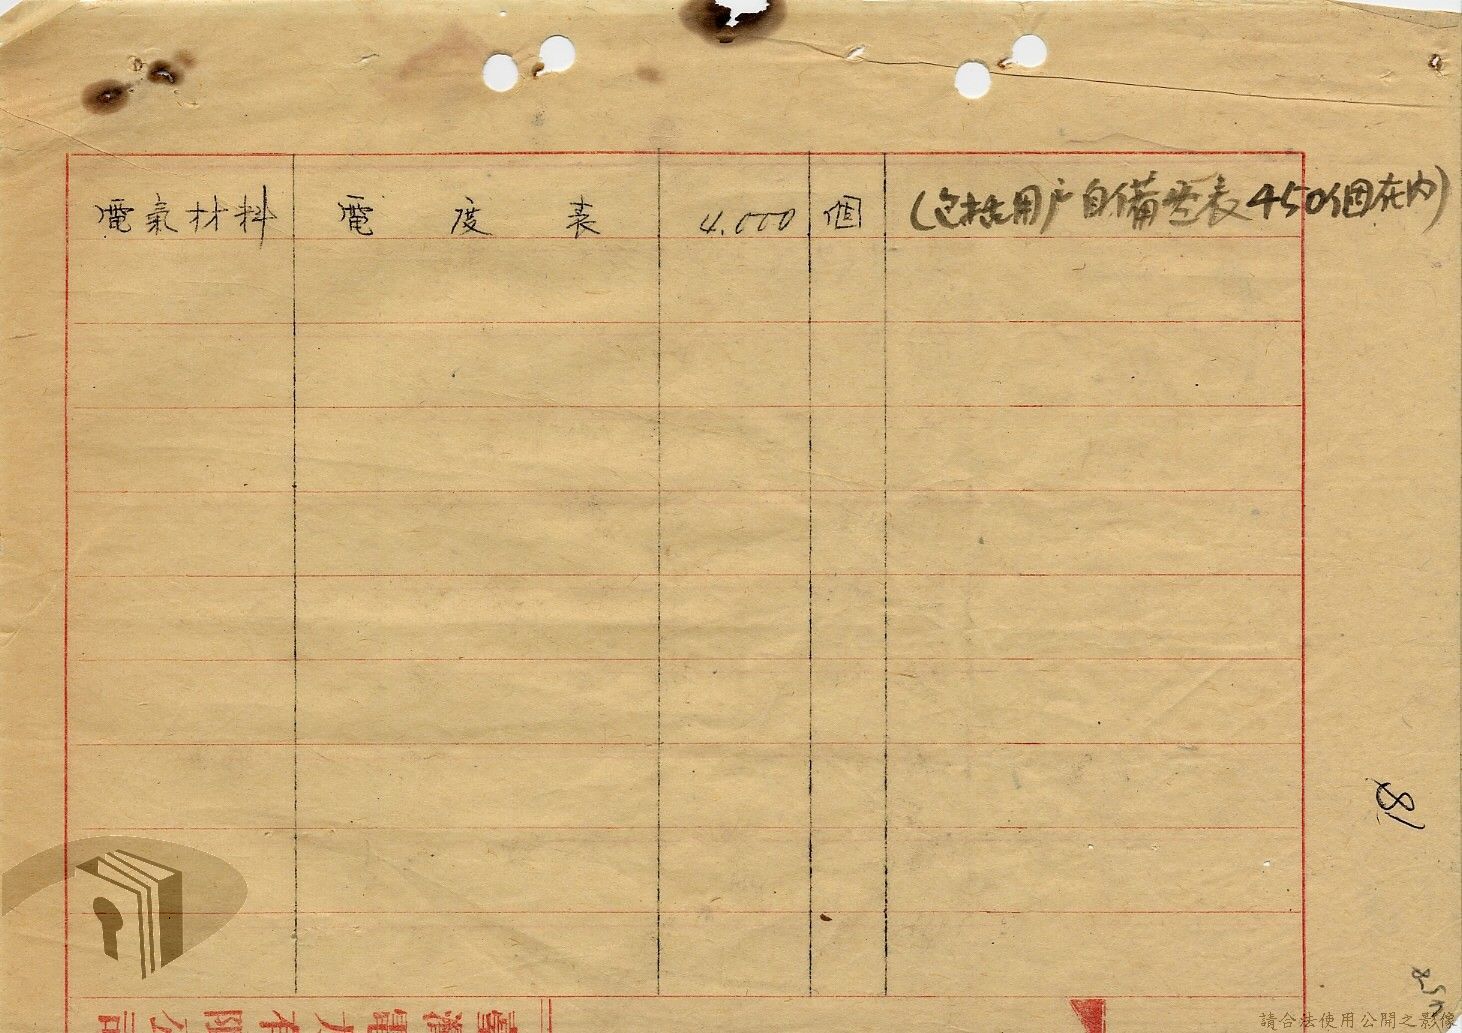 電氣材料 電度表 4.000 個 (包括用户自備電表450個在内)
81
臺灣電力有限公司
請合法使用公開之影像